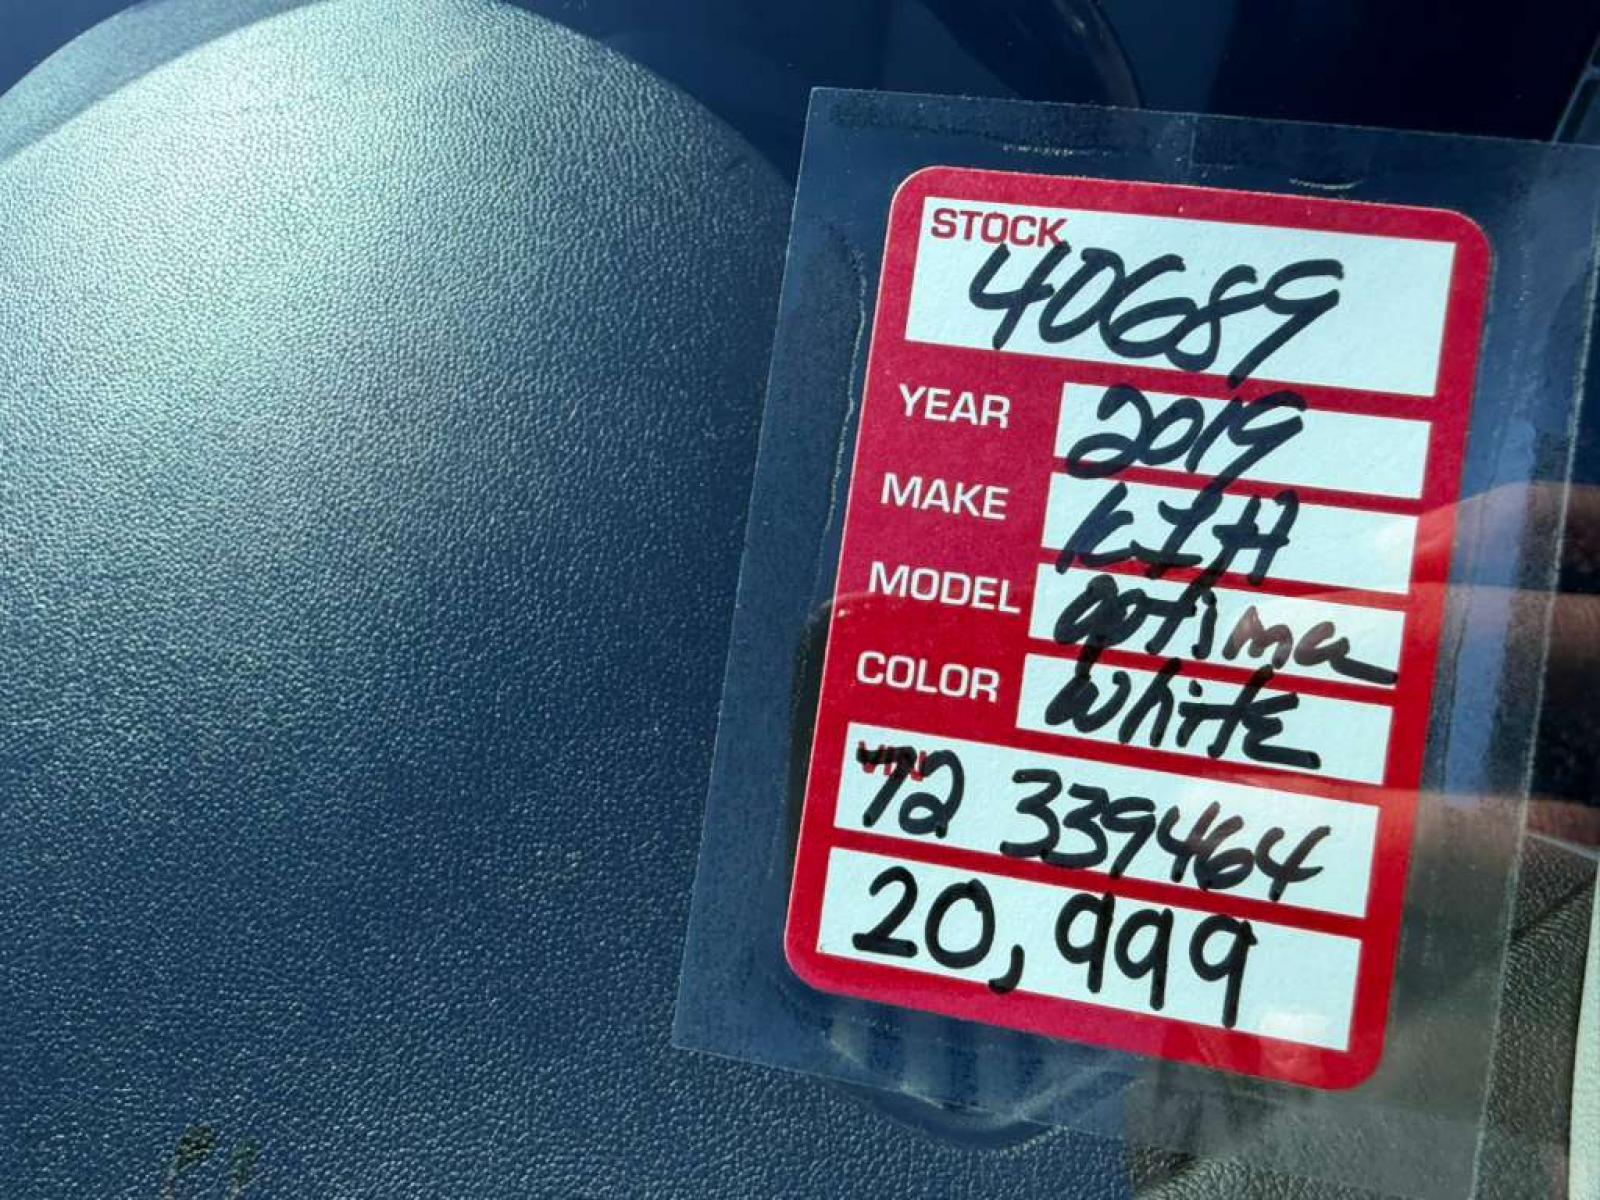 STOCK
40689
YEAR 2019
MAKE KIA
MODEL optima
COLOR white
VIN
72 339464
20,999